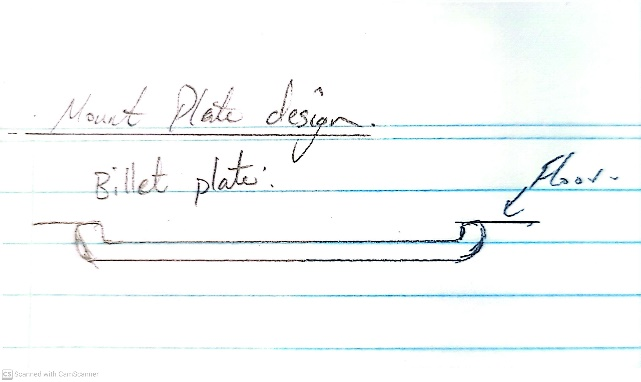 Mount Plate design.
Billet plate:
Floor.
CS Scanned with CamScanner